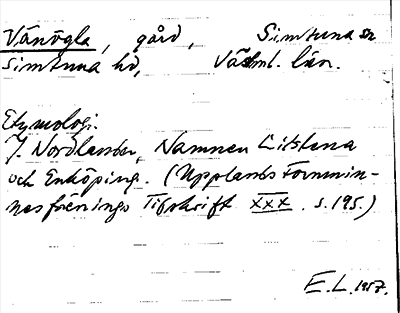 Vänögla, gård, Simtuna sn
Simtuna hd, Västml. län.
Etymologi.
J. Nordlander, Namnen Litslena
och Enköping. (Upplands Fornmin-
nesförenings Tidskrift XXX. s. 195.)
E. L. 1957.